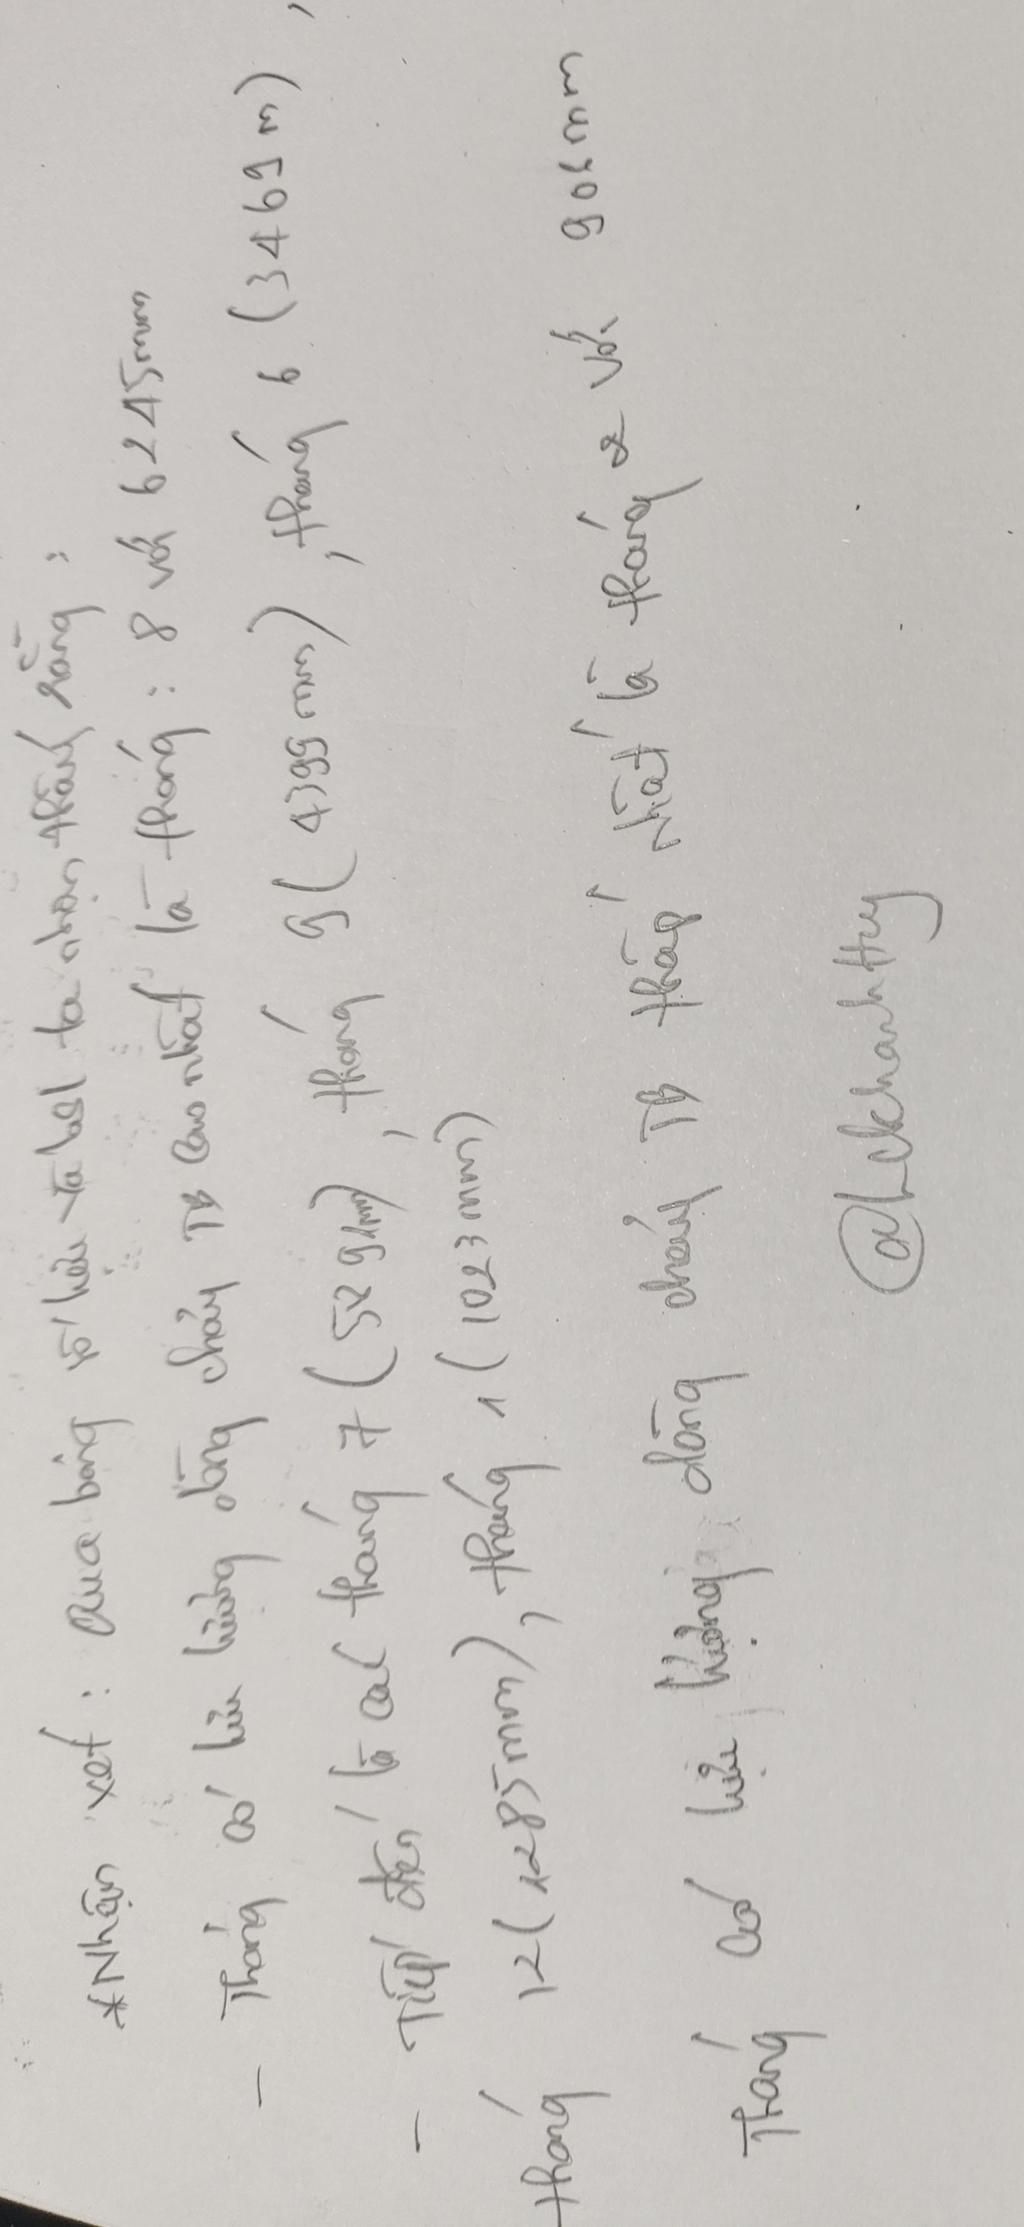 *Nhận xét: Qua bảng số liệu ta ta nhận thấy rằng:
- Tháng có lưu lượng dòng chảy TB cao nhất là tháng: 8 với 6245mm
- Tiếp đến là các tháng 7 (5291mm), tháng 9 (4399mm), tháng 6 (3469 m),
tháng 12 (1285mm), tháng 1 (1023mm)
Tháng có lưu lượng dòng chảy TB thấp nhất là tháng 2 với 906mm
@LekhanhHuy